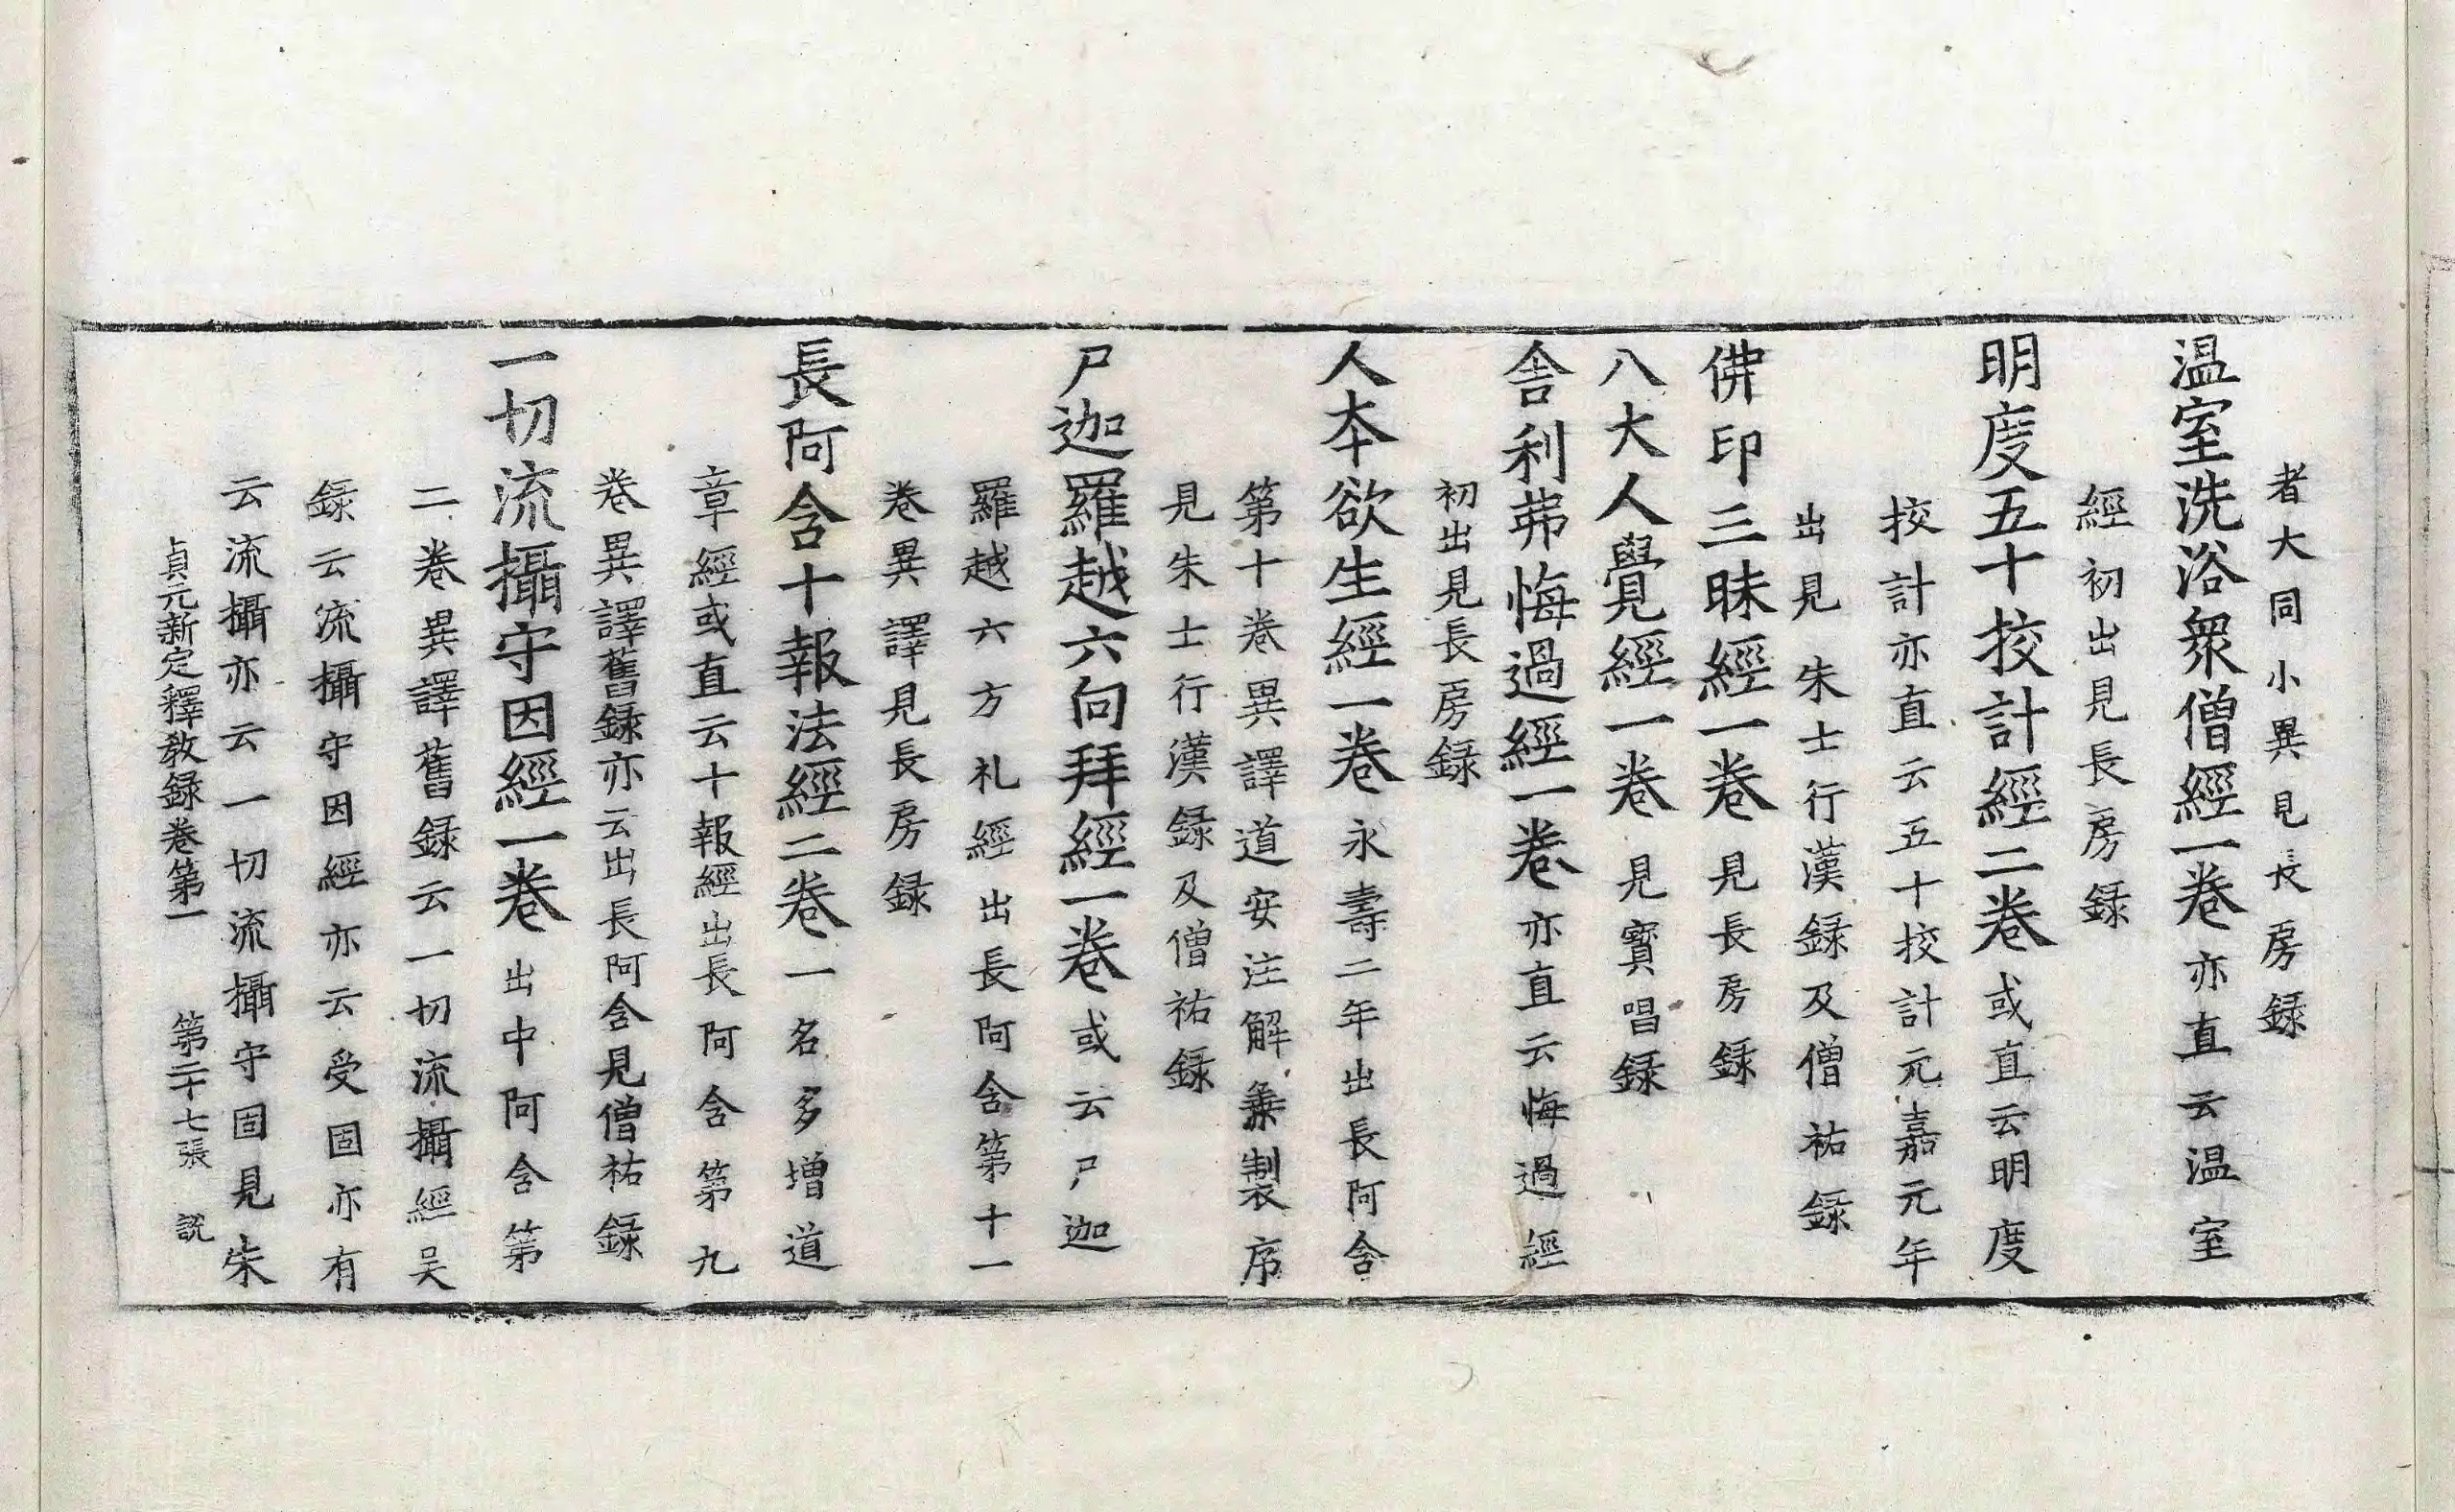 者大同小異見長房録
温室洗浴衆僧經一卷亦直云温室
經初出見長房録
明度五十挍計經二卷或直云明度
挍計亦直云五十挍計元嘉元年
出見朱士行漢録及僧祐録
佛印三昧經一卷見長房録
八大人覺經一卷見寶唱録
舎利弗悔過經一卷亦直云悔過經
初出見長房録
人本欲生經一卷永壽二年出長阿含
第十卷異譯道安注解兼製序
見朱士行漢録及僧祐録
尸迦羅越六向拜經一卷或云尸迦
羅越六方礼經出長阿含第十一
卷異譯見長房録
長阿含十報法經二卷一名多增道
章經或直云十報經出長阿含第九
卷異譯舊録亦云出長阿含見僧祐録
一切流攝守因經一卷出中阿含第
二卷異譯舊録云一切流攝經吴
録云流攝守因經亦云受固亦有
云流攝亦云一切流攝守固見朱
貞元新定釋教録卷第一 第二十七張 説